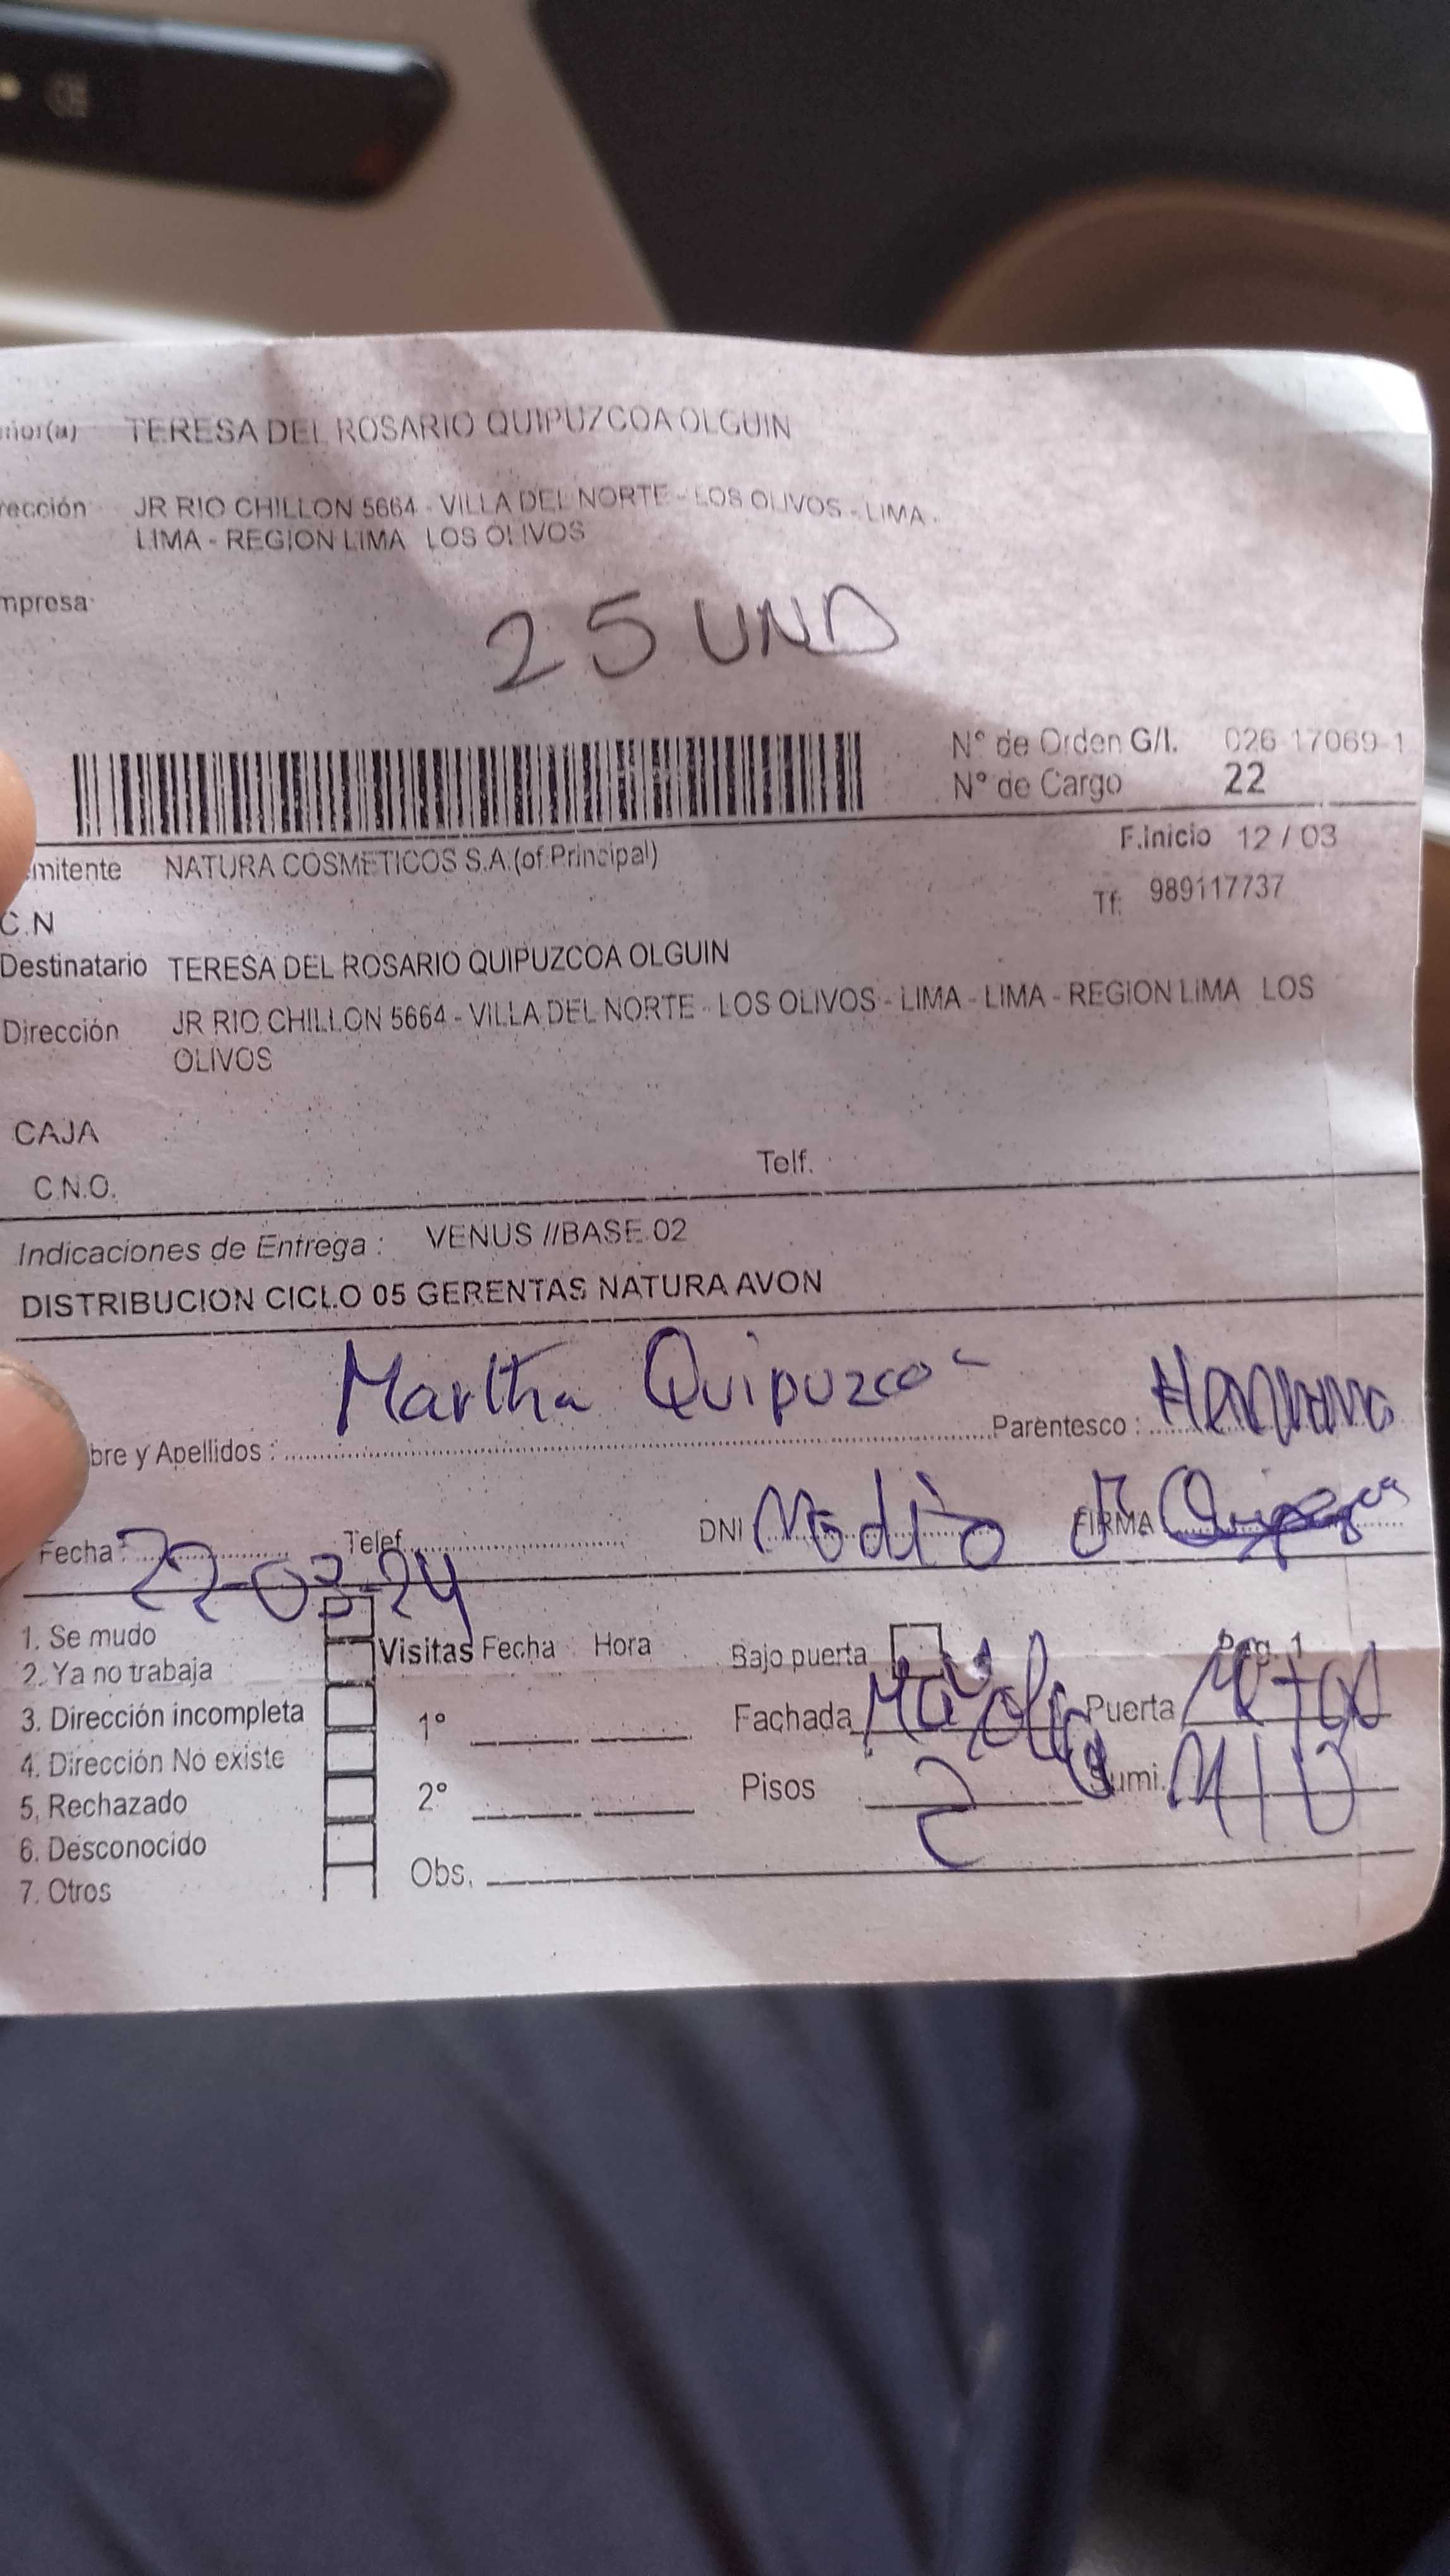 TERESA DEL ROSARIO QUIPUZCOA OLGUIN
JR RIO CHILLON 5664 - VILLA DEL NORTE - LOS OLIVOS - LIMA -
LIMA - REGION LIMA LOS OLIVOS
25 UND
N° de Orden G/I. 026-17069-1
N° de Cargo 22
F.Inicio 12 / 03
NATURA COSMETICOS S.A.(of.Principal)
Tf: 989117737
C.N
Destinatario TERESA DEL ROSARIO QUIPUZCOA OLGUIN
Dirección JR RIO CHILLON 5664 - VILLA DEL NORTE - LOS OLIVOS - LIMA - LIMA - REGION LIMA LOS
OLIVOS
CAJA
Telf.
C.N.O.
Indicaciones de Entrega : VENUS //BASE 02
DISTRIBUCION CICLO 05 GERENTAS NATURA AVON
Martha Quipuzcoa
bre y Apellidos : Parentesco : Hermana
Fecha : 22-03-24 Telef. DNI No dio FIRMA
1. Se mudo
2. Ya no trabaja
3. Dirección incompleta
4. Dirección No existe
5. Rechazado
6. Desconocido
7. Otros
Visitas Fecha Hora
1°
2°
Obs.
Bajo puerta Pag. 1
Fachada Puerta
Pisos 2 Sumi.